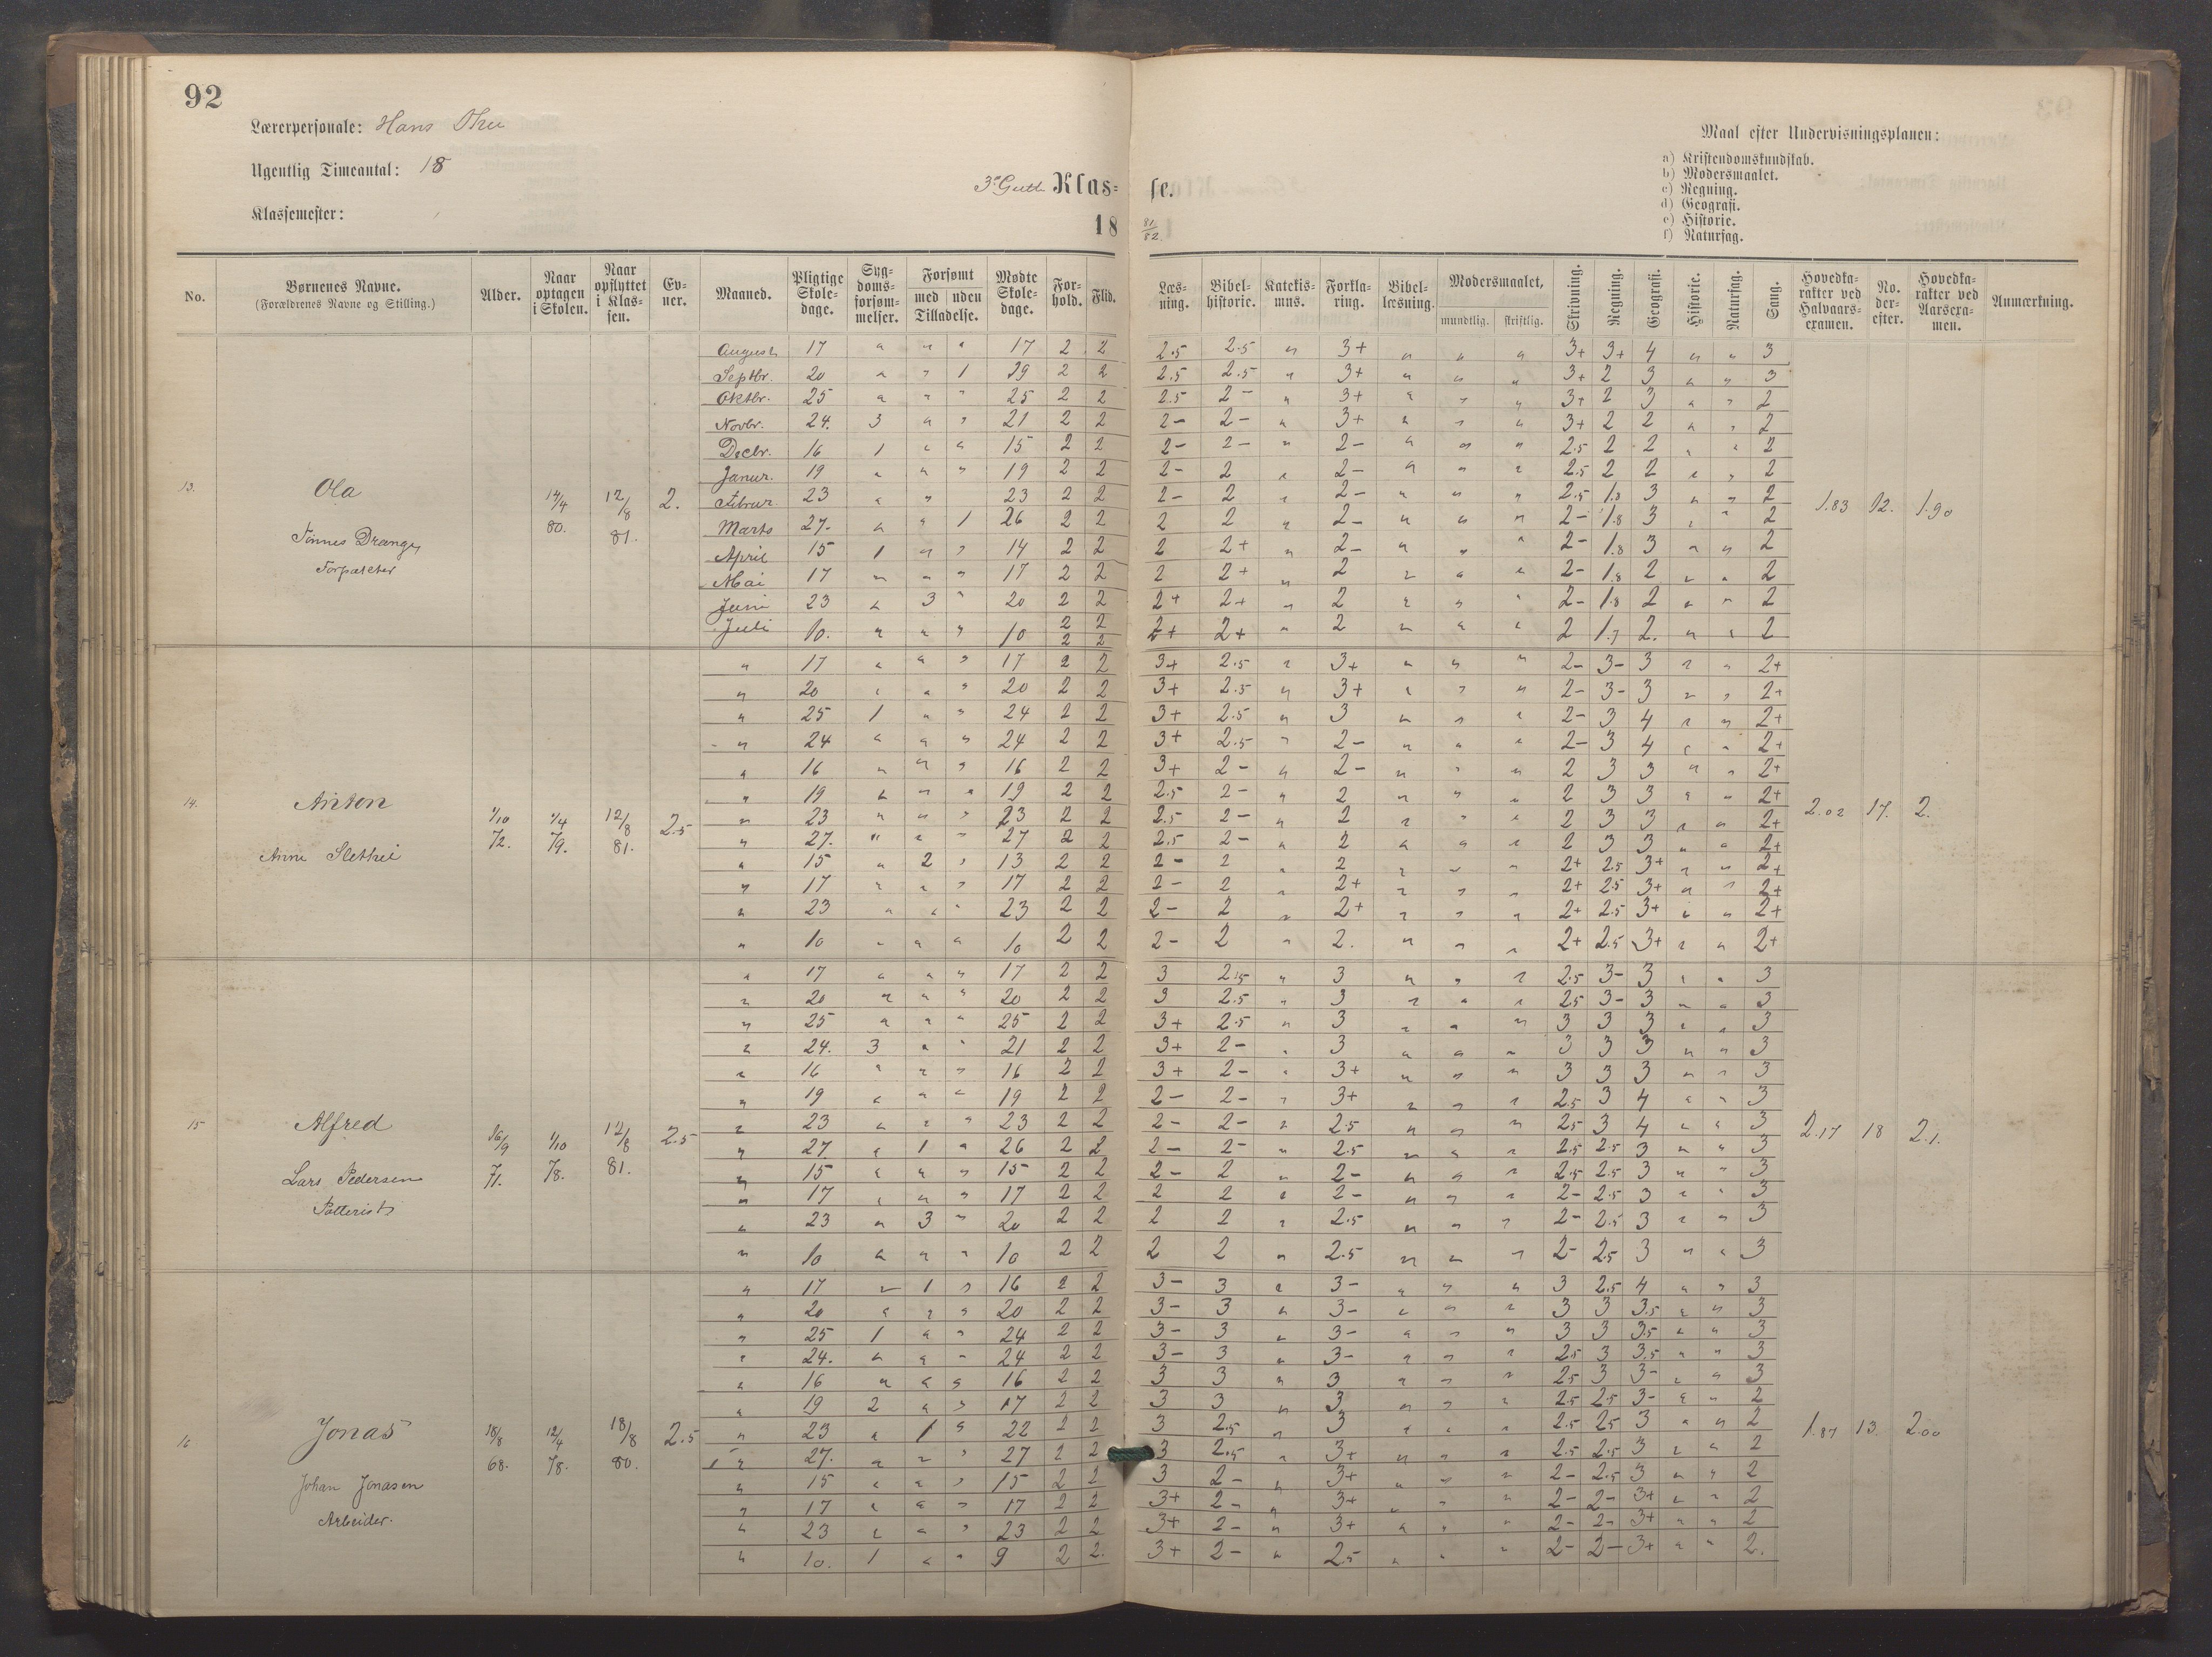 92
Lærerpersonale: Hans
Ugentlig Timeantal: 18
Klassemester:
3e Gutte Klas=
se.
18
81/82
Maal efter Undervisningsplanen:
a) Kristendomskundskab.
b) Modersmaalet.
c) Regning.
d) Geografi.
e) Historie.
f) Naturfag.
No.
Børnenes Navne.
(Forældrenes Navne og Stilling.)
Alder.
Naar optagen i Skolen.
Naar opflyttet i Klas-sen.
Ev-ner.
Maaned.
Pligtige Skole-dage.
Syg-doms-forsøm-melser.
Forsømt
med uden
Tilladelse.
Mødte Skole-dage.
For-hold.
Flid.
Læs-ning.
Bibel-historie.
Katekis-mus.
Forkla-ring.
Bibel-læsning.
Modersmaalet,
mundtlig. skriftlig.
Skrivning.
Regning.
Geografi.
Historie.
Naturfag.
Sang.
Hovedka-rakter ved Halvaars-examen.
No. der-efter.
Hovedka-rakter ved Aarsexa-men.
Anmærkning.
13.
Ola
Tønnes Drange
Forpakter
14/4 80.
12/8 81.
2.
August 17 " " " 17 2 2 2.5 2.5 " 3+ " " " 3+ 3+ 4 " " 3
Septbr. 20 " " 1 19 2 2 2.5 2.5 " 3+ " " " 3+ 2 3 " " 3
Oktbr. 25 " " " 25 2 2 2.5 2- " 3+ " " " 3+ 2 3 " " 2
Novbr. 24. 3 " " 21 2 2 2- 2- " 3+ " " " 3+ 2 2 " " 2
Decbr. 16 1 " " 15 2 2 2- 2- " 2- " " " 2.5 2 2 " " 2
Janur. 19 " " " 19 2 2 2- 2 " 2- " " " 2.5 2 2 " " 2
Februr. 23 " " 23 2 2 2- 2 " 2- " " " 2.5 1.8 3 " " 2
Marts 27. " " 1 26 2 2 2 2 " 2- " " " 2- 1.8 3 " " 2
April 15 1 " " 14 2 2 2 2+ " 2- " " " 2- 1.8 3 " " 2
Mai 17 " " " 17 2 2 2 2+ " 2 " " " 2- 1.8 2 " " 2
Juni 23 " 3 " 20 2 2 2+ 2+ " 2 " " " 2- 1.8 2 " " 2
Juli 10. " " " 10 2 2 2+ 2+ " 2 " " " 2 1.7 2. " " 2
2 2
1.83 12. 1.90
14.
Anton
Anne Slethei
1/10 72.
1/4 79.
12/8 81.
2.5
" 17 " " " 17 2 2 3+ 2.5 " 3+ " " " 2- 3- 3 " " 2+
" 20 " " " 20 2 2 3+ 2.5 " 3+ " " " 2- 3- 3 " " 2+
" 25 1 " " 24 2 2 3+ 2.5 " 3 " " " 2- 3 4 " " 2+
" 24 " " " 24 2 2 3+ 2.5 " 2- " " " 2- 3 4 " " 2+
" 16 " " " 16 2 2 3+ 2- " 2- " " " 2 3 3 " " 2+
" 19 " " " 19 2 2 2.5 2- " 2 " " " 2 3 3 " " 2+
" 23 " " " 23 2 2 2.5 2- " 2 " " " 2 3 3 " " 2+
" 27. " " " 27 2 2 2.5 2- " 2 " " " 2 3 3 " " 2+
" 15 " 2 " 13 2 2 2- 2 " 2 " " " 2+ 2.5 3+ " " 2+
" 17 " " " 17 2 2 2- 2 " 2+ " " " 2+ 2.5 3+ " " 2+
" 23 " " " 23 2 2 2- 2 " 2+ " " " 2+ 2.5 3+ " " 2+
" 10 " " " 10 2 2 2- 2 " 2. " " " 2+ 2.5 3+ " " 2+
2.02 17. 2.
15
Alfred
Lars Pedersen
Potterist
26/9 71.
1/10 78.
12/8 81.
2.5
" 17 " " " 17 2 2 3 2.5 " 3 " " " 2.5 3- 3 " " 3
" 20 " " " 20 2 2 3 2.5 " 3 " " " 2.5 3- 3 " " 3
" 25 " " " 25 2 2 3+ 2.5 " 3 " " " 3 3 3 " " 3
" 24. 3 " " 21 2 2 3+ 2- " 3 " " " 3 3 3 " " 3
" 16 " " " 16 2 2 3+ 2- " 3+ " " " 3 3 3 " " 3
" 19 " " " 19 2 2 2- 2- " 3+ " " " 2.5 3 4 " " 3
" 23 " " " 23 2 2 2- 2- " 2.5 " " " 2.5 3 4 " " 3
" 27. " 1 " 26 2 2 2- 2- " 2.5 " " " 2.5 2.5 3 " " 3
" 15 " " " 15 2 2 2- 2 " 2- " " " 2.5 2.5 3 " " 3
" 17 " " " 17 2 2 2 2 " 2- " " " 2- 2.5 3 " " 3
" 23 " 3 " 20 2 2 2 2 " 2.5 " " " 2- 2.5 3 " " 3
" 10 " " " 10 2 2 2 2 " 2.5 " " " 2- 2.5 3 " " 3
2.17 18 2.1.
16.
Jonas
Johan Jonasen
Arbeider.
18/8 68.
12/4 78.
18/8 80.
2.5
" 17 " 1 " 16 2 2 3- 3 " 3- " " " 3 2.5 4 " " 3
" 20 " " " 20 2 2 3- 3 " 3- " " " 3 3 3.5 " " 3
" 25 1 " " 24 2 2 3- 3 " 3- " " " 3 3 3.5 " " 3
" 24. " " " 24 2 2 3- 3 " 3- " " " 2.5 3 3.5 " " 3
" 16 " " " 16 2 2 3 3 " 3 " " " 2.5 3 3- " " 3
" 19 2 " " 17 2 2 3 3 " 3 " " " 2.5 2.5 3- " " 2
" 23 " 1 " 22 2 2 3 2.5 " 3 " " " 2.5 2.5 3 " " 2
" 27. " " " 27 2 2 3 2.5 " 3+ " " " 2.5 2.5 3 " " 2
" 15 " " " 15 2 2 3 2- " 3+ " " " 2- 2.5 3 " " 2
" 17 " " " 17 2 2 3+ 2- " 3+ " " " 2- 2- 3+ " " 2
" 23 " " " 23 2 2 3+ 2- " 3+ " " " 2- 2- 3+ " " 2
" 10. 1 " " 9 2 2. 3+ 2- " 2.5 " " " 2- 2- 3+ " " 2.
1.87 13. 2.00